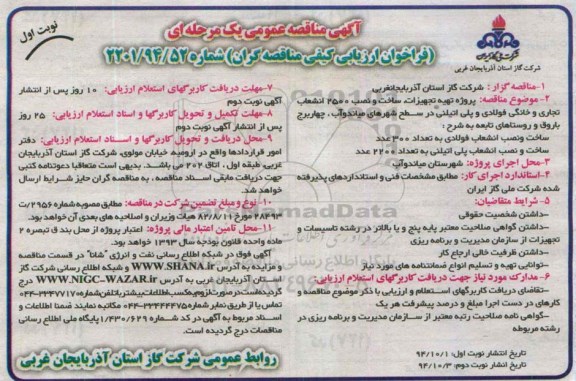 نوبت اول
آگهی مناقصه عمومی یک مرحله ای
(فراخوان ارزیابی کیفی مناقصه گران) شماره ۲۲۰۱/۹۴/۵۲
شرکت گاز استان آذربایجان غربی
۱-مناقصه گزار: شرکت گاز استان آذربایجانغربی
۲-موضوع مناقصه: پروژه تهیه تجهیزات، ساخت و نصب ۲۵۰۰ انشعاب
تجاری و خانگی فولادی و پلی اتیلنی در سطح شهرهای میاندوآب، چهاربرج
باروق و روستاهای تابعه به شرح:
ساخت ونصب انشعاب فولادی به تعداد ۳۰۰ عدد
ساخت و نصب انشعاب پلی اتیلنی به تعداد ۲۲۰۰ عدد
۳-محل اجرای پروژه: شهرستان میاندوآب
۴-استاندارد اجرای کار: مطابق مشخصات فنی و استانداردهای پذیرفته
شده شرکت ملی گاز ایران
۵- شرایط متقاضیان:
-داشتن شخصیت حقوقی
-داشتن گواهی صلاحیت معتبر پایه پنج و یا بالاتر در رشته تاسیسات و
تجهیزات از سازمان مدیریت و برنامه ریزی
-داشتن ظرفیت خالی ارجاع کار
-توانایی تهیه و تسلیم انواع ضمانتنامه های مورد نیاز
۶- مدارک مورد نیاز جهت دریافت کاربرگهای استعلام ارزیابی:
-تقاضای دریافت کاربرگهای استعلام و ارزیابی با ذکر موضوع مناقصه و
کارهای در دست اجرا مبلغ و درصد پیشرفت هر یک
-گواهی نامه صلاحیت رتبه معتبر از سازمان مدیریت و برنامه ریزی در
رشته مربوطه
تاریخ انتشار نوبت اول: ۹۴/۱۰/۱
تاریخ انتشار نوبت دوم: ۹۴/۱۰/۳
۷-مهلت دریافت کاربرگهای استعلام ارزیابی: ۱۰ روز پس از انتشار
آگهی نوبت دوم
۸-مهلت تکمیل و تحویل کاربرگها و اسناد استعلام ارزیابی: ۲۵ روز
پس از انتشار آگهی نوبت دوم
۹-محل دریافت و تحویل کاربرگها و اسناد استعلام ارزیابی: دفتر
امور قراردادها واقع در ارومیه خیابان مولوی، شرکت گاز استان آذربایجان
غربی، طبقه اول، اتاق ۲۰۲ می باشد. بدیهی است متعاقبا دعوتنامه کتبی
جهت دریافت مابقی اسناد مناقصه، به مناقصه گران حایز شرایط ارسال
خواهد شد.
۱۰-نوع و مبلغ تضمین شرکت در مناقصه: مطابق مصوبه شماره ۲۹۵۶/ت
۲۸۴۹۳ مورخ ۸۲/۸/۱۱ هیات وزیران و اصلاحیه های بعدی آن خواهد بود.
۱۱-محل تامین اعتبار مالی پروژه: اعتبار پروژه از محل بند ق تبصره ۲
ماده واحده قانون بودجه سال ۱۳۹۳ خواهد بود.
آگهی فوق در شبکه اطلاع رسانی نفت و انرژی "شانا" در قسمت مناقصه
و مزایده به آدرس WWW.SHANA.ir و شبکه اطلاع رسانی شرکت گاز
استان آذربایجان غربی به آدرس WWW.NIGC-WAZAR.ir درج
گردیده است در صورت لزوم به کسب اطلاعات بیشتر با تلفن شماره
تماس یا از طریق نمابر شماره مکاتبه نمایید ضمنا اطلاعات و
اسناد مربوط به آگهی در کد شماره ۴۳۰/۶۲۹ پایگاه ملی اطلاع رسانی
مناقصات درج گردیده است.
روابط عمومی شرکت گاز استان آذربایجان غربی